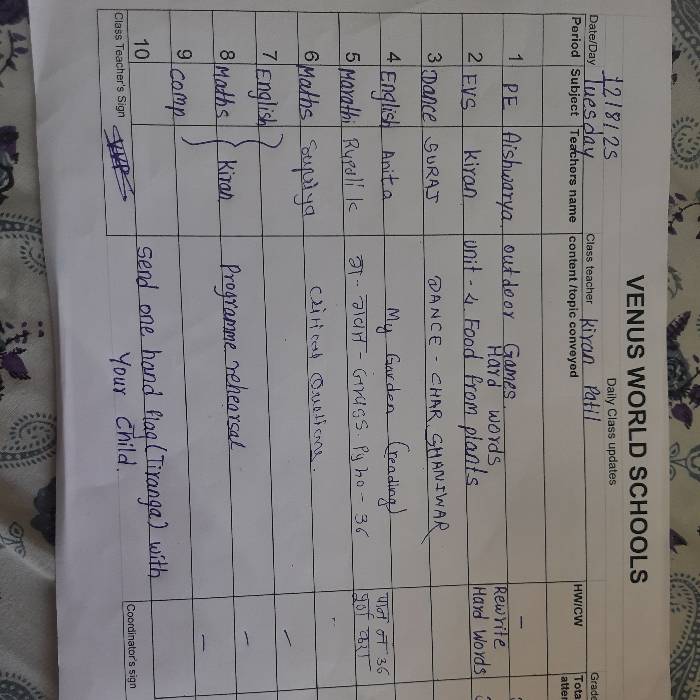 VENUS WORLD SCHOOLS
Daily Class updates
Date/Day 12/8/25 Tuesday Class teacher Kiran Patil Grade
Period Subject Teachers name content/topic conveyed HW/CW Tota
1 PE Aishwarya outdoor Games. -
2 EVS kiran unit - 4 Food from plants Hard words Rewrite Hard Words
3 Dance SURAJ DANCE - CHAR SHANIWAR
4 English Anita My Garden (reading)
5 Marathi Pg no - 36 36
6 Maths Supriya
7 English
8 Maths Kiran Programme rehearsal -
9 Comp -
10 Send one hand flag (Tiranga) with Your Child.
Class Teacher's Sign Coordinator's sign